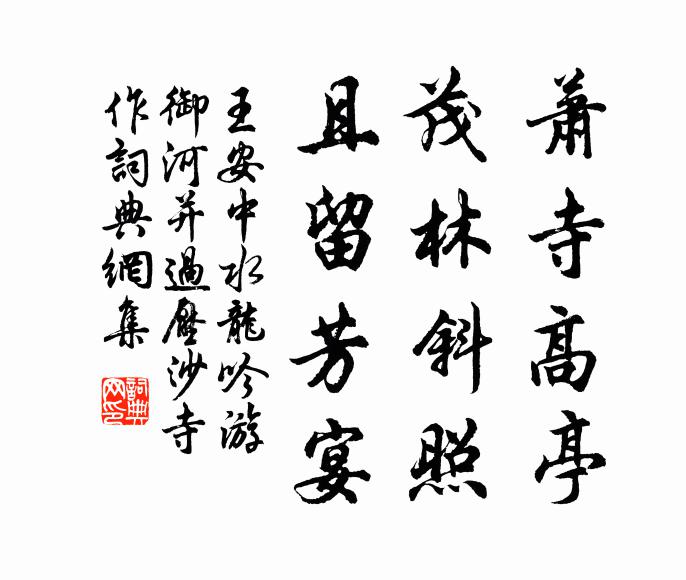 蕭寺高亭
茂林斜照
且留芳宴
王安中水龍吟游
御河并過壓沙寺
作詞典網集
詞典
网印